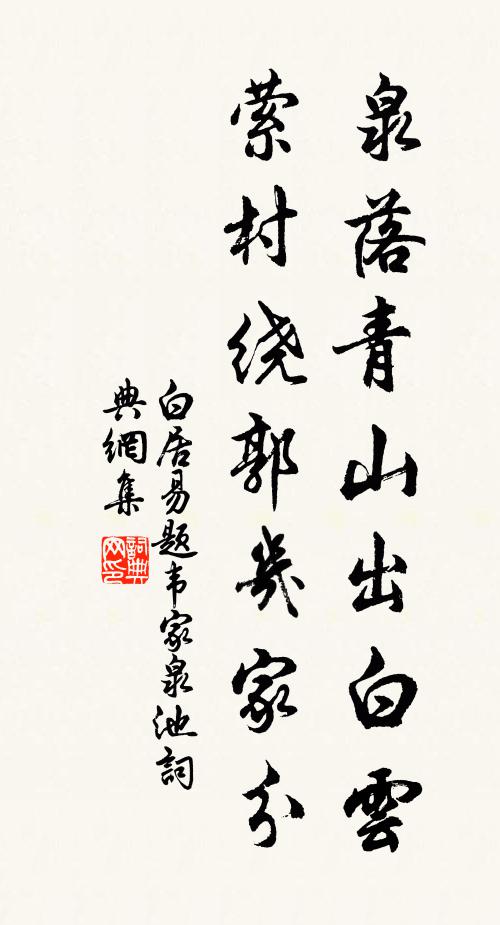 泉落青山出白雲
萦村绕郭幾家分
白居易题韦家泉池詞
典網集
詞典网印